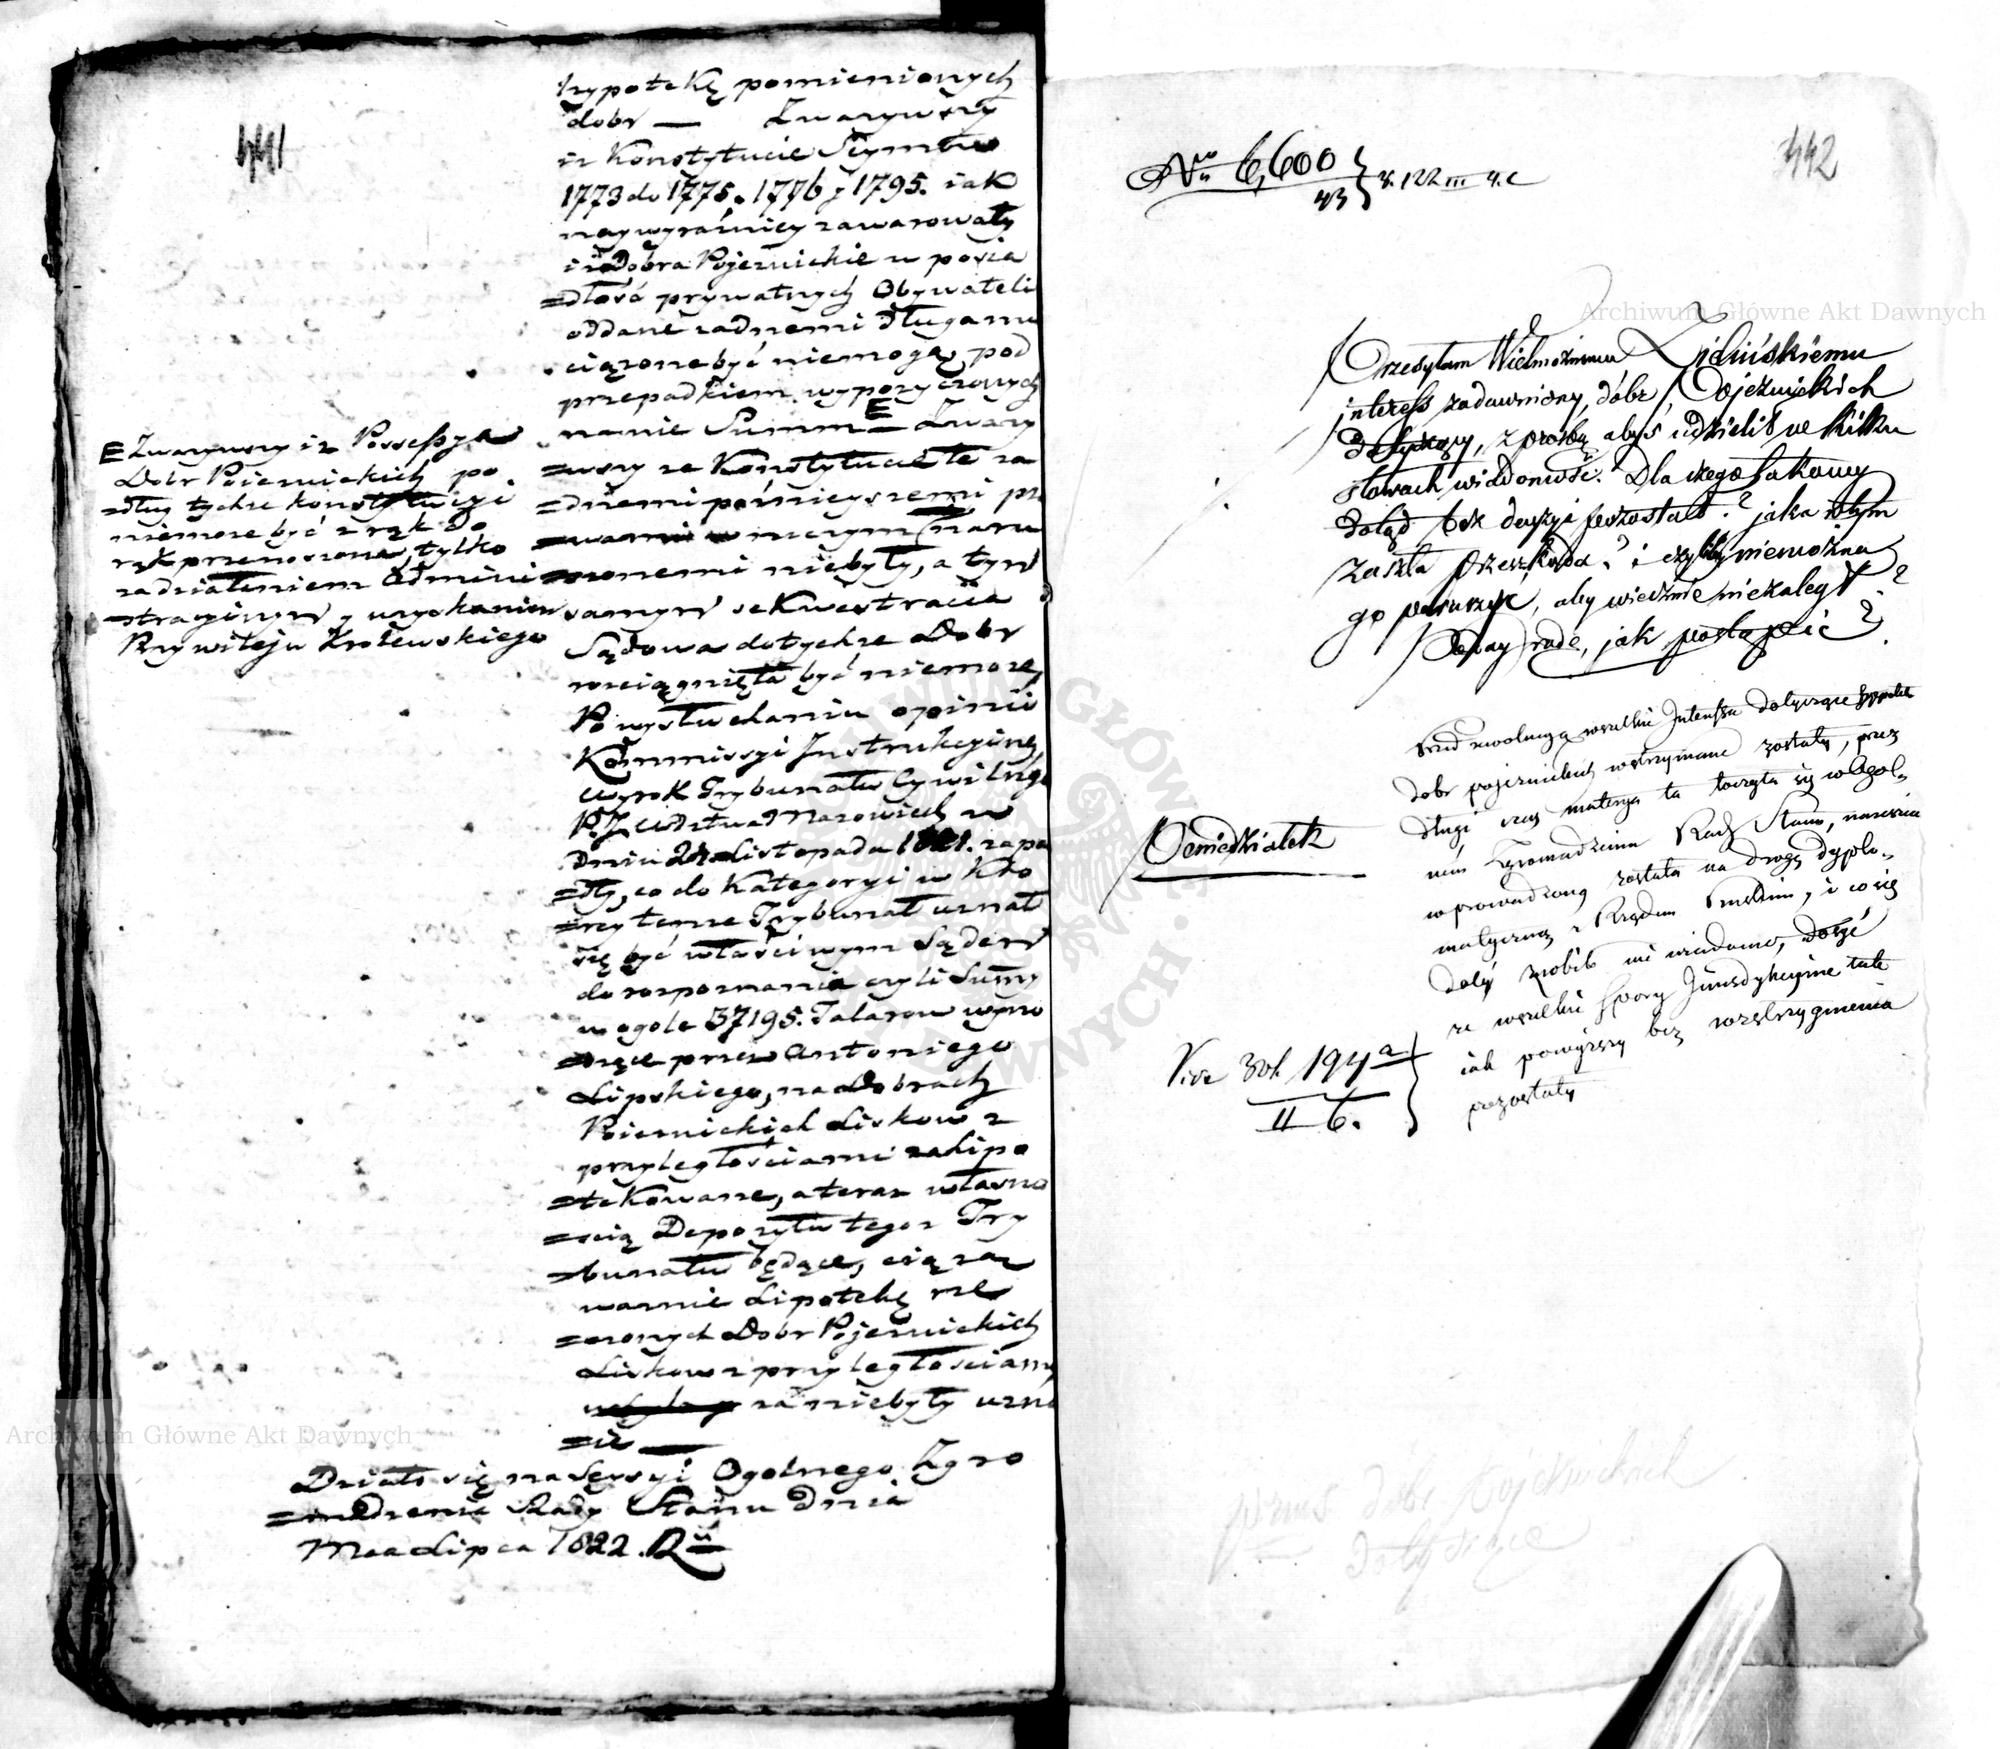 441
hypotekę pomienionych
dobr — Zwazywszy
iż Konstytucie Seymów
1773 do 1775. 1776 y 1795. iak
naywyraźniey zawarowały
iż Dobra Pojezuickie w posia
=dłość prywatnych Obywateli
oddane żadnemi długami
ciążone być niemogą, pod
przepadkiem wypożyczonych
nanie Summ E Zwazy
=wszy że Konstytucie te ża
=dnemi późnieyszemi pra
=wami w niczym naru
=szonemi niebyły, a tym
samym sekwestracia
Sądowa do tychże Dobr
rościągnięta być niemoże,
Po wysłuchaniu opinii
Kommissyi Instrukcyiney,
wyrok Trybunału Cywilnego
P. I. Wdztwa Mazowieck w
Dniu 24 Listopada 1821. zapa
=dły, co do Kategoryi w któ
=rey temże Trybunał uznał
się być właściwym Sądem
do rozpoznania czyli Summy
w ogole 37195. Talarow wyno
=szące przez Antoniego
Lipskiego, na Dobrach
Poiezuickich Liskow z
przyległościami zahipo
=tekowane, a teraz własno
=ścią Depozytu tegoż Try
=bunału będące, ciążą
ważnie Hipotekę rze
=czonych Dobr Pojezuickich
Liskow z przyległościami
za niebyły uzna
=ie —
E Zwazywszy iż Possessya
Dobr Poiezuickich po
=dług tychże konstytucyi
niemoże być z rąk do
rąk przenoszona, tylko
za działeniem Admini
=stracyinym y uzyskaniem
Przywileju Krolewskiego
Działo się na Sessyi Ogolnego Zgro
=madzenia Rady Stanu Dnia
Mca Lipca 1822. R
442
Nro 6,600
43
r. 122 III
Przesyłam Wielmożnemu Zielińskiemu
interess zadawniony, dóbr Pojezuickich
dotyczący, z prośbą abyś udzielił w kilku
słowach wiadomość: Dla czego takowy
dotąd bez decyzyi pozostał? jaka w tym
zaszła przeszkoda? i czyliby niemożna
go poruszyć, aby wiecznie niezaległ?
Oddaj radę, jak postąpić?
wszelkie Interessa dotyczące hypotek
dobr pojezuickich wstrzymane zostały, przez
długi czas materya ta toczyła się w Ogol=
ném Zgromadzeniu Rady Stanu, nareszcie
wprowadzoną została na drogę dyplo=
matyczną z Rządem Pruskim, i co się
daléy zrobiło nie wiadomo, dosyć
że wszelkie spory Jurisdykcyine tak
iak powyższy bez rozstrzygnienia
pozostały
Poniedziałek
Vide Vol. 194
II b.
dobr Pojezuickich
dotyczące
Archiwum Główne Akt Dawnych
Archiwum Główne Akt Dawnych